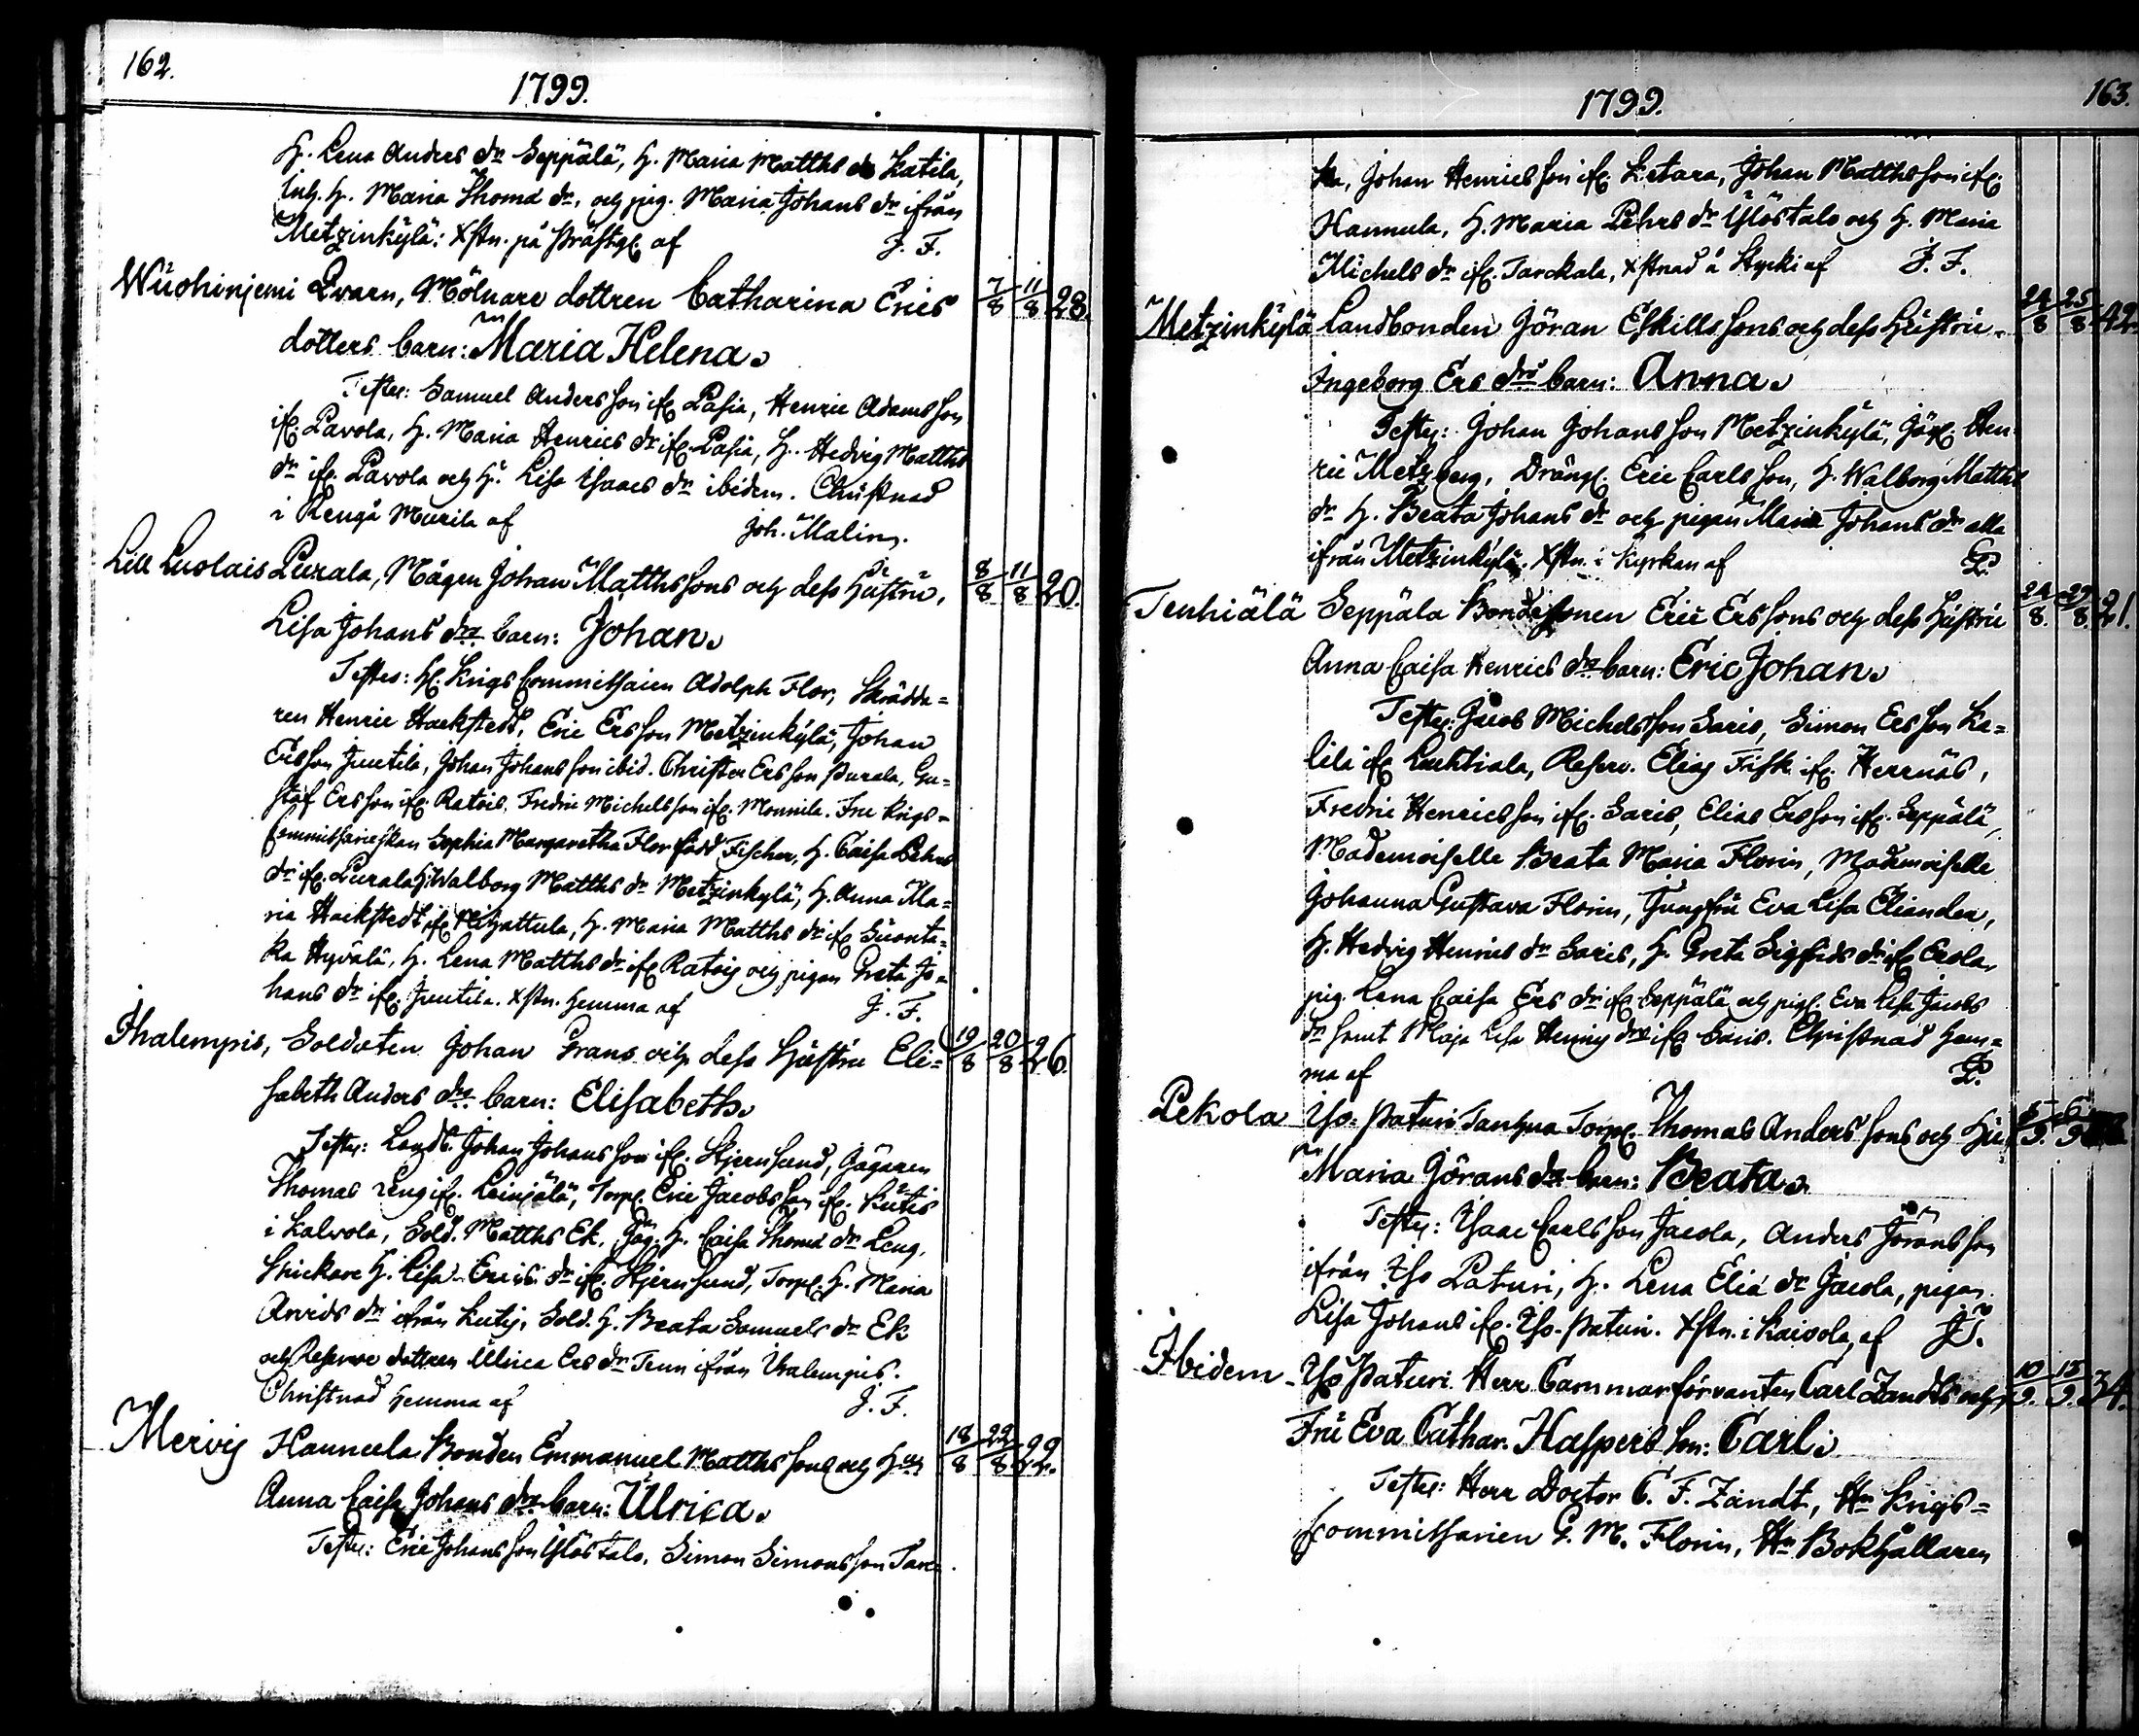 162.
1799.
H. Lena Anders dr Seppälä, H. Maria Matths dr Katila,
Inh. H. Maria Thoma dr, och pig. Maria Johans dr ifrån
Metzinkÿlä: Xstn. på Prästg. af J. F.
Wuohinjemi Qvarn, Mölnare dottren Catharina Erics 7/8 11/8 28.
dotters barn: Maria Helena.
Testes: Samuel Andersson ifr. Pasia, Henric Adamsson
ifr. Pavola, H. Maria Henrics dr ifr. Pasia, H. Hedvig Matths
dr ifr. Pavola och H. Lisa Isaacs dr ibidem. Christnad
i Rengå Murila af Joh. Malin.
Lill Luolais Purala, Mågen Johan Matthssons och dess Hustru, 8/8 11/8 20.
Lisa Johans drs barn: Johan.
Testes: H. Krigs Commissarien Adolph Flor, Skrädda=
ren Henric Hackstedt, Eric Ersson Metzinkÿlä, Johan
Ersson Juutila, Johan Johansson ibid. Christer Ersson Purala, Gu=
staf Ersson ifr. Ratois, Fredric Michelsson ifr. Monnila. Fru Krigs=
Commissarieskan Sophia Margaretha Flor född Fischer, H. Caisa Pehrs
dr ifr. Purala, H. Walborg Matths dr Metzinkylä, H. Anna Ma=
ria Hackstedt ifr. Mihattula, H. Maria Matths dr ifr. Suonta=
ka Hyvälä, H. Lena Matths dr ifr. Ratois och pigan Greta Jo=
hans dr ifr. Juutila. Xstn. hemma af J. F.
Ihalempis, Soldaten Johan Grans och dess Hustru Eli= 19/8 20/8 26.
sabeth Anders drs barn: Elisabeth.
Testes: Landb. Johan Johansson ifr. Stjernsund, Jägaren
Thomas Leng ifr. Leinjälä, Torp. Eric Jacobsson ifr. Kutis
i Kalvola, Sold. Matths Ek, Jäg. H. Caisa Thoma dr Leng,
Snickare H. Lisa Erics dr ifr. Stjernsund, Torp. H. Maria
Arvids dr ifrån Kutis, Sold. H. Beata Samuels dr Ek
och Reserve dottren Ulrica Ers dr Tenn ifrån Ihalempis.
Christnad hemma af J. F.
Mervis Hannula Bonden Emmanuel Matthssons och Hus 18/8 22/8 22.
Anna Caisa Johans drs barn: Ulrica.
Testes: Eric Johansson Ylöstalo, Simon Simonsson Tarc
1799.
163.
ka, Johan Henricsson ifr. Ketara, Johan Matthsson ifr.
Hannula, H. Maria Pehrs dr Ylöstalo och H. Maria
Michels dr ifr. Tarckala, Xstnad å Stycki af J. F.
Metzinkÿlä Landbonden Jöran Eskillssons och dess Hustru 24/8 25/8 42.
Ingeborg Ers drs barn: Anna.
Testes: Johan Johansson Metzinkÿlä, Jäg. Hen
ric Metzberg, Dräng. Eric Carlsson, H. Walborg Matths
dr H. Beata Johans dr och pigan Maria Johans dr alla
ifrån Metzinkÿlä. Xstn. i Kyrkan af P.
Tenhiälä Seppälä Bondesonen Eric Erssons och dess Hustru 24/8. 29/8. 21.
Anna Caisa Henrics drs barn: Eric Johan.
Testes: Jacob Michelsson Saris, Simon Ersson Ka=
lila ifr. Luhtiala, Reserv. Elias Fisk ifr. Herrnäs,
Fredric Henricsson ifr. Saris, Elias Ersson ifr. Seppälä,
Mademoiselle Beata Maria Florin, Mademoiselle
Johanna Gustava Florin, Jungfru Eva Lisa Eliander,
H. Hedvig Henrics dr Saris, H. Greta Sigfrids dr ifr. Erola,
pig. Lena Caisa Ers dr ifr. Seppälä och pig. Eva Lisa Jacobs
dr samt Maja Lisa Henrics dr ifr. Saris. Christnad hem=
ma af P.
Pekola Iso. Paturi Tanhua Torp. Thomas Anderssons och Hu 5/9. 6/9
Maria Jörans drs barn: Beata.
Testes: Isaac Carlsson Jacola, Anders Jöransson
ifrån Iso Paturi, H. Lena Elia dr Jacola, pigan
Lisa Johans ifr. Iso. Paturi. Xstn. i Kaivola, af J. F.
Ibidem Iso Paturi Herr Cammarförvanten Carl Zandts och 10/9. 13/9. 34.
Fru Eva Cathar. Haspers son: Carl.
Testes: Herr Doctor C. F. Zandt, Hr Krigs=
Commissarien G. M. Florin, Hr Bokhållaren